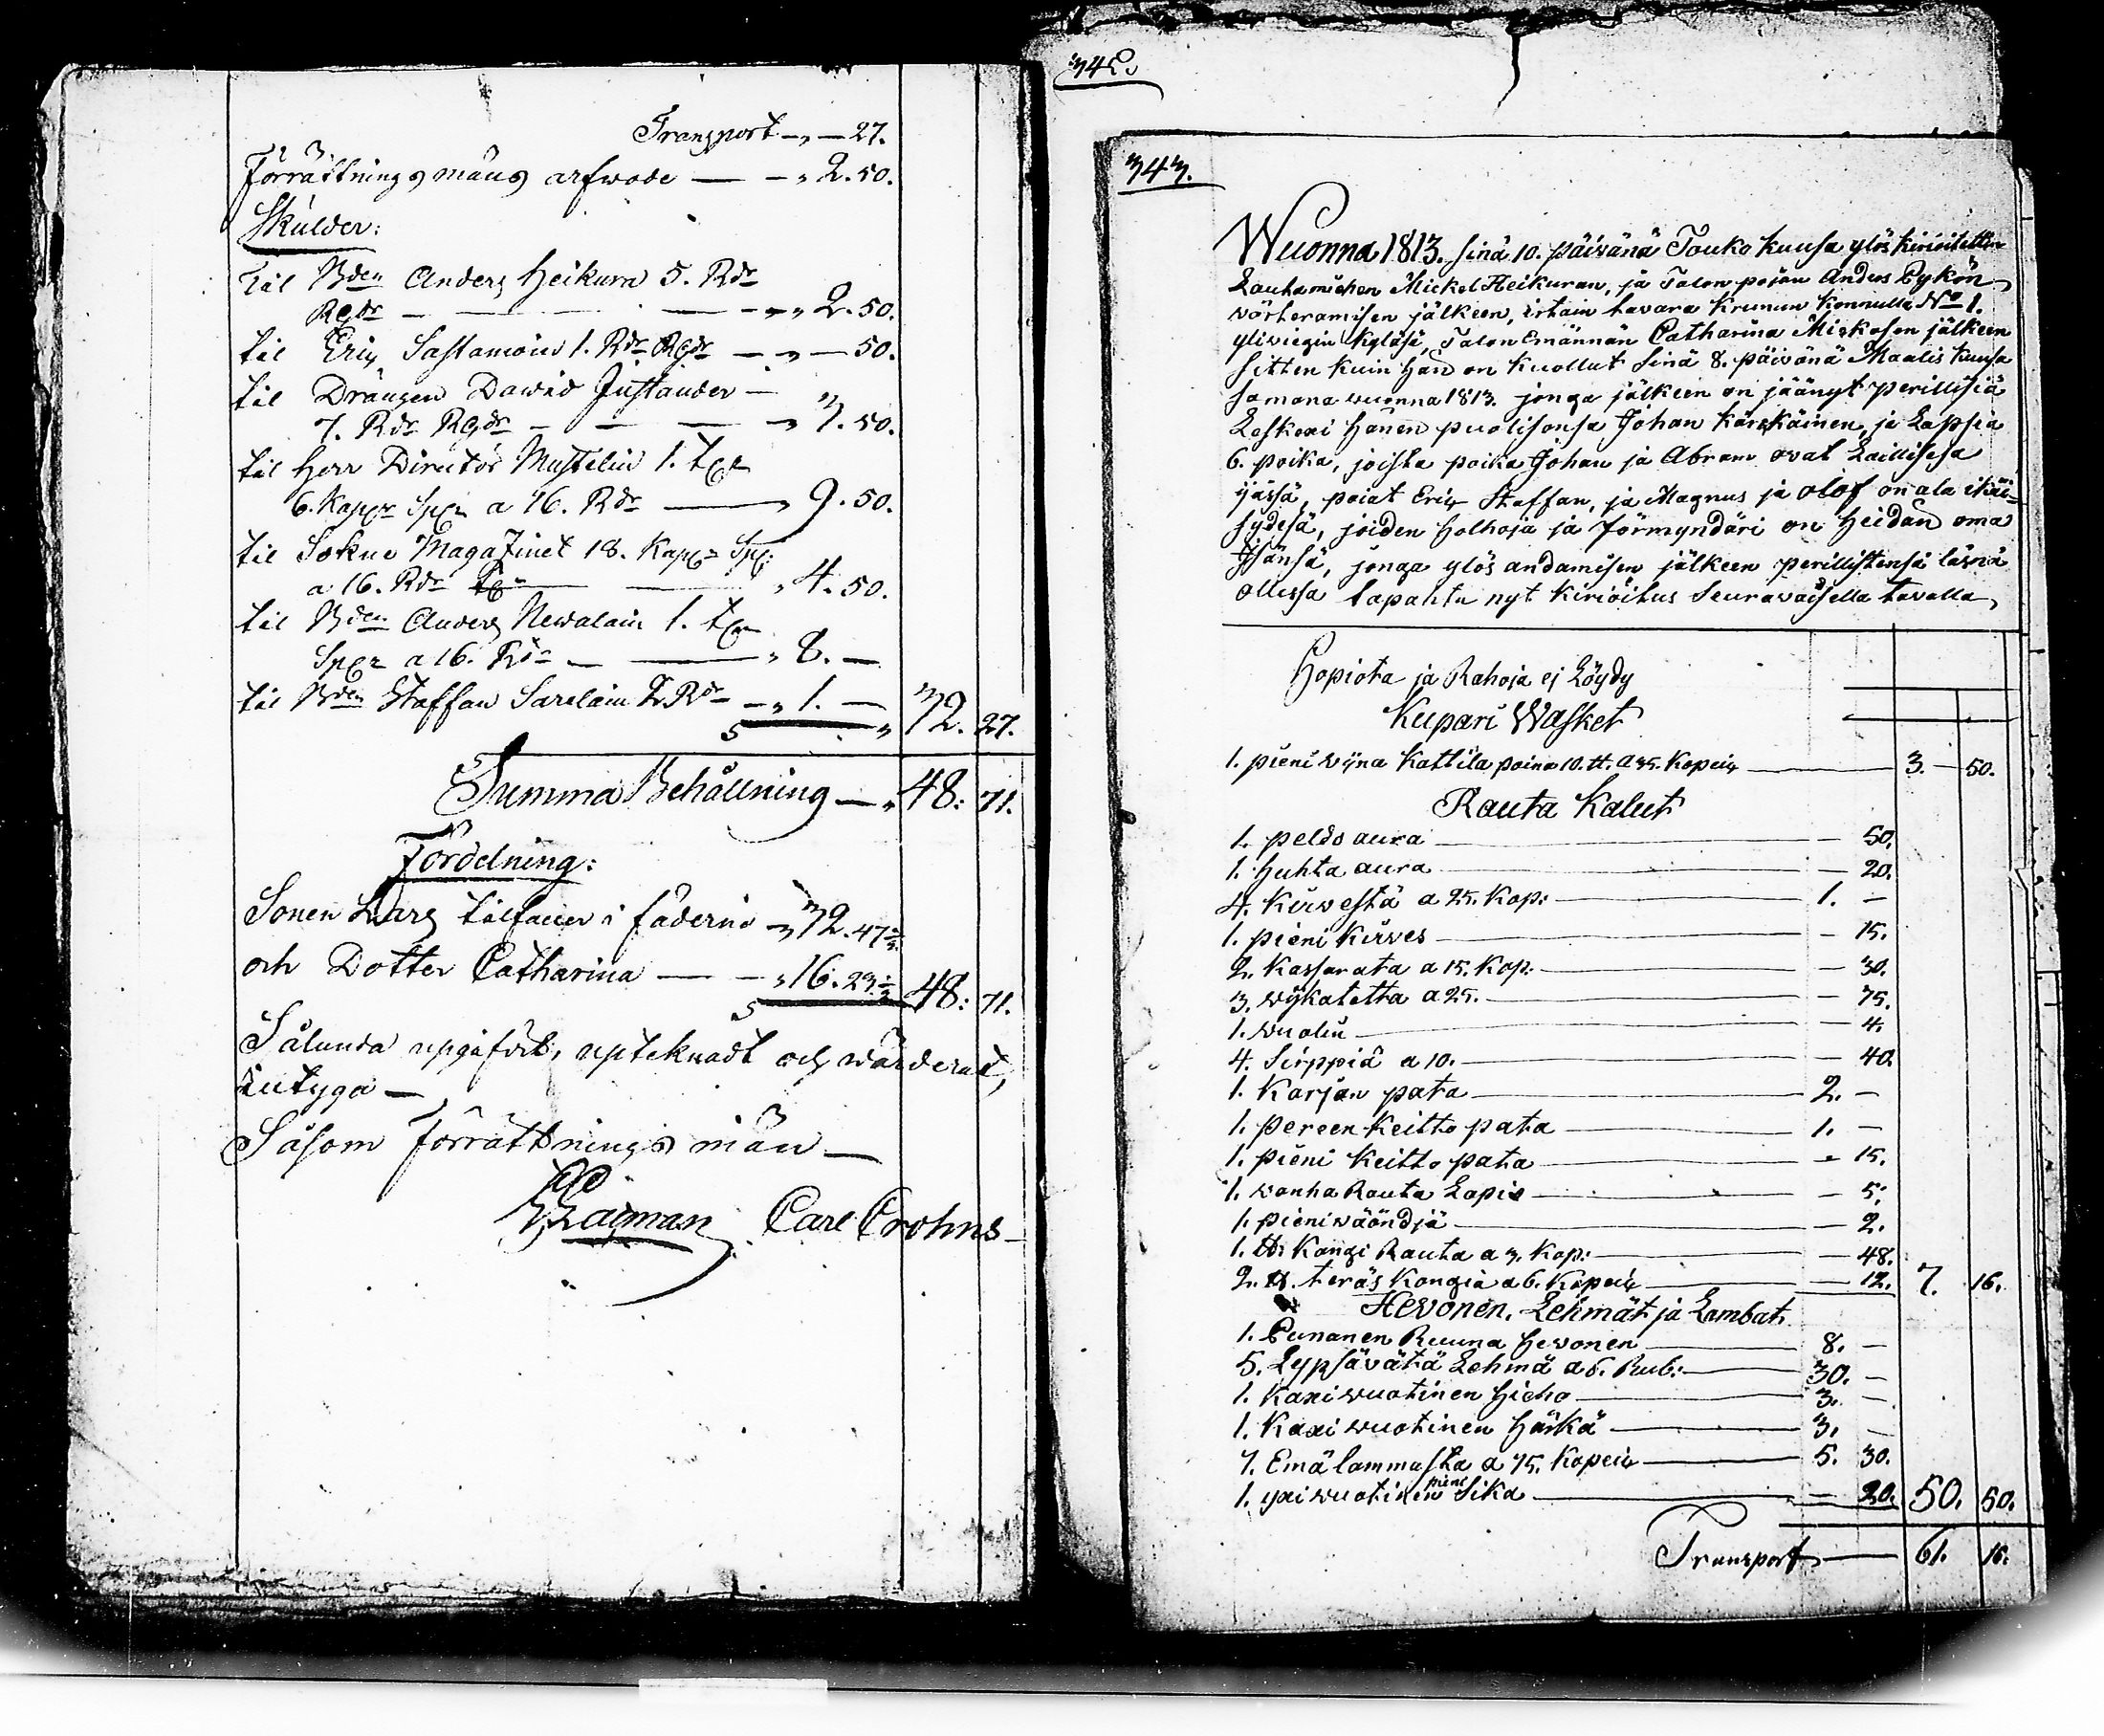 Transport — „ — 27.
Förrättnings mäns arfwode — — „ 2. 50.
Skulder:
til Bden Anders Heikura 5. Rdr
Rgdr — — — „ 2. 50.
til Eric Sastamoin 1. Rdr Rgdr — „ — 50.
til Drängen Dawid Justander —
7. Rdr Rgdr — — — „ 3. 50.
til Herr Director Mustelin 1. t
6. Kappr Sp a 16. Rdr — „ 9. 50.
til Sokne Magazinet 18. Kapp Sp:
a 16. Rdr — „ 4. 50.
til Bden Anders Newalain 1. t
Sp a 16. Rdr — — „ 8. —
til Bden Staffan Sarelain 2. Rdr — „ 1. — 32. 27.
Summa Behållning — „ 48: 71.
Fördelning:
Sonen Lars tilfaller i fäderne „ 32. 47 1/3.
och Dotter Catharina — — „ 16. 23 2/3 48: 71.
Sålunda upgifvit, upteknadt och wärderat,
intyga —
Såsom förrättnings män —
Carl Crohns
342.
343.
Wuonna 1813. sinä 10. päivänä Touko kuusa ylös kirioitettin
Lautamiehen Mickel Heikuran, ja Talon pojan Andws Pykön
wörteramisen jälkeen, irtain tavara Krunun Konnulla No 1.
yliviexin kyläsä, Talon Emännän Catharina Mickosen jälkeen
sitten kuin hän on kuollut sinä 8. päivänä Maalis kuusa
samana wuonna 1813. jonga jälkeen on jäänyt perillisiä
Leskexi hänen puolisonsa Johan Kärckäinen, ja Lapsia
6. poika, joista poika Johan ja Abram ovat Laillisesa
ijässä, poiat Eric Staffan, ja Magnus ja olof on ala ikäi=
sydesä, joiden holhoja ja förmyndäri on heidän oma
Isänsä, jonga ylös andamisen jälkeen perillistensä läsnä
ollessa tapahtu nyt kirioitus seuravaisella tavalla
Hopiota ja Rahoja ej Löydy
Kupari Wasket
1. pieni wijna Kattila paina 10. ℔. a 35. Kopeik — 3. — 50.
Rauta Kalut
1. peldo aura — 50.
1. huhta aura — 20.
4. Kirwestä a 25. Kop: — 1. —
1. pieni Kirwes — 15.
2. Kassarata a 15. Kop: — 30.
3. wijkatetta a 25. — 75.
1. wuolin — 4.
4. Sirppiä a 10. — 40.
1. Karjan pata — 2. —
1. pereen Keitto pata — 1. —
1. pieni Keitto pata — 15.
1. wanha Rauta Lapio — 5.
1. pieni wäändjä — 2.
1. ℔ Kangi Rauta a 3. Kop: — 48.
2. ℔. teräs Kangia a 6. Kopeik — 12. 7. 16.
Hevonen, Lehmät ja Lambat
1. Punanen Ruuna hevonen — 8. —
5. Lypsävätä Lehmä a 6. Rub: — 30. —
1. Kaxi wuotinen hieho — 3. —
1. Kaxi wuotinen härkä — 3. —
7. Emä lammasta a 75. Kopeik — 5. 30.
1. yxi wuotinen pieni Sika — 20. 50. 50.
Transport — 61. 16.